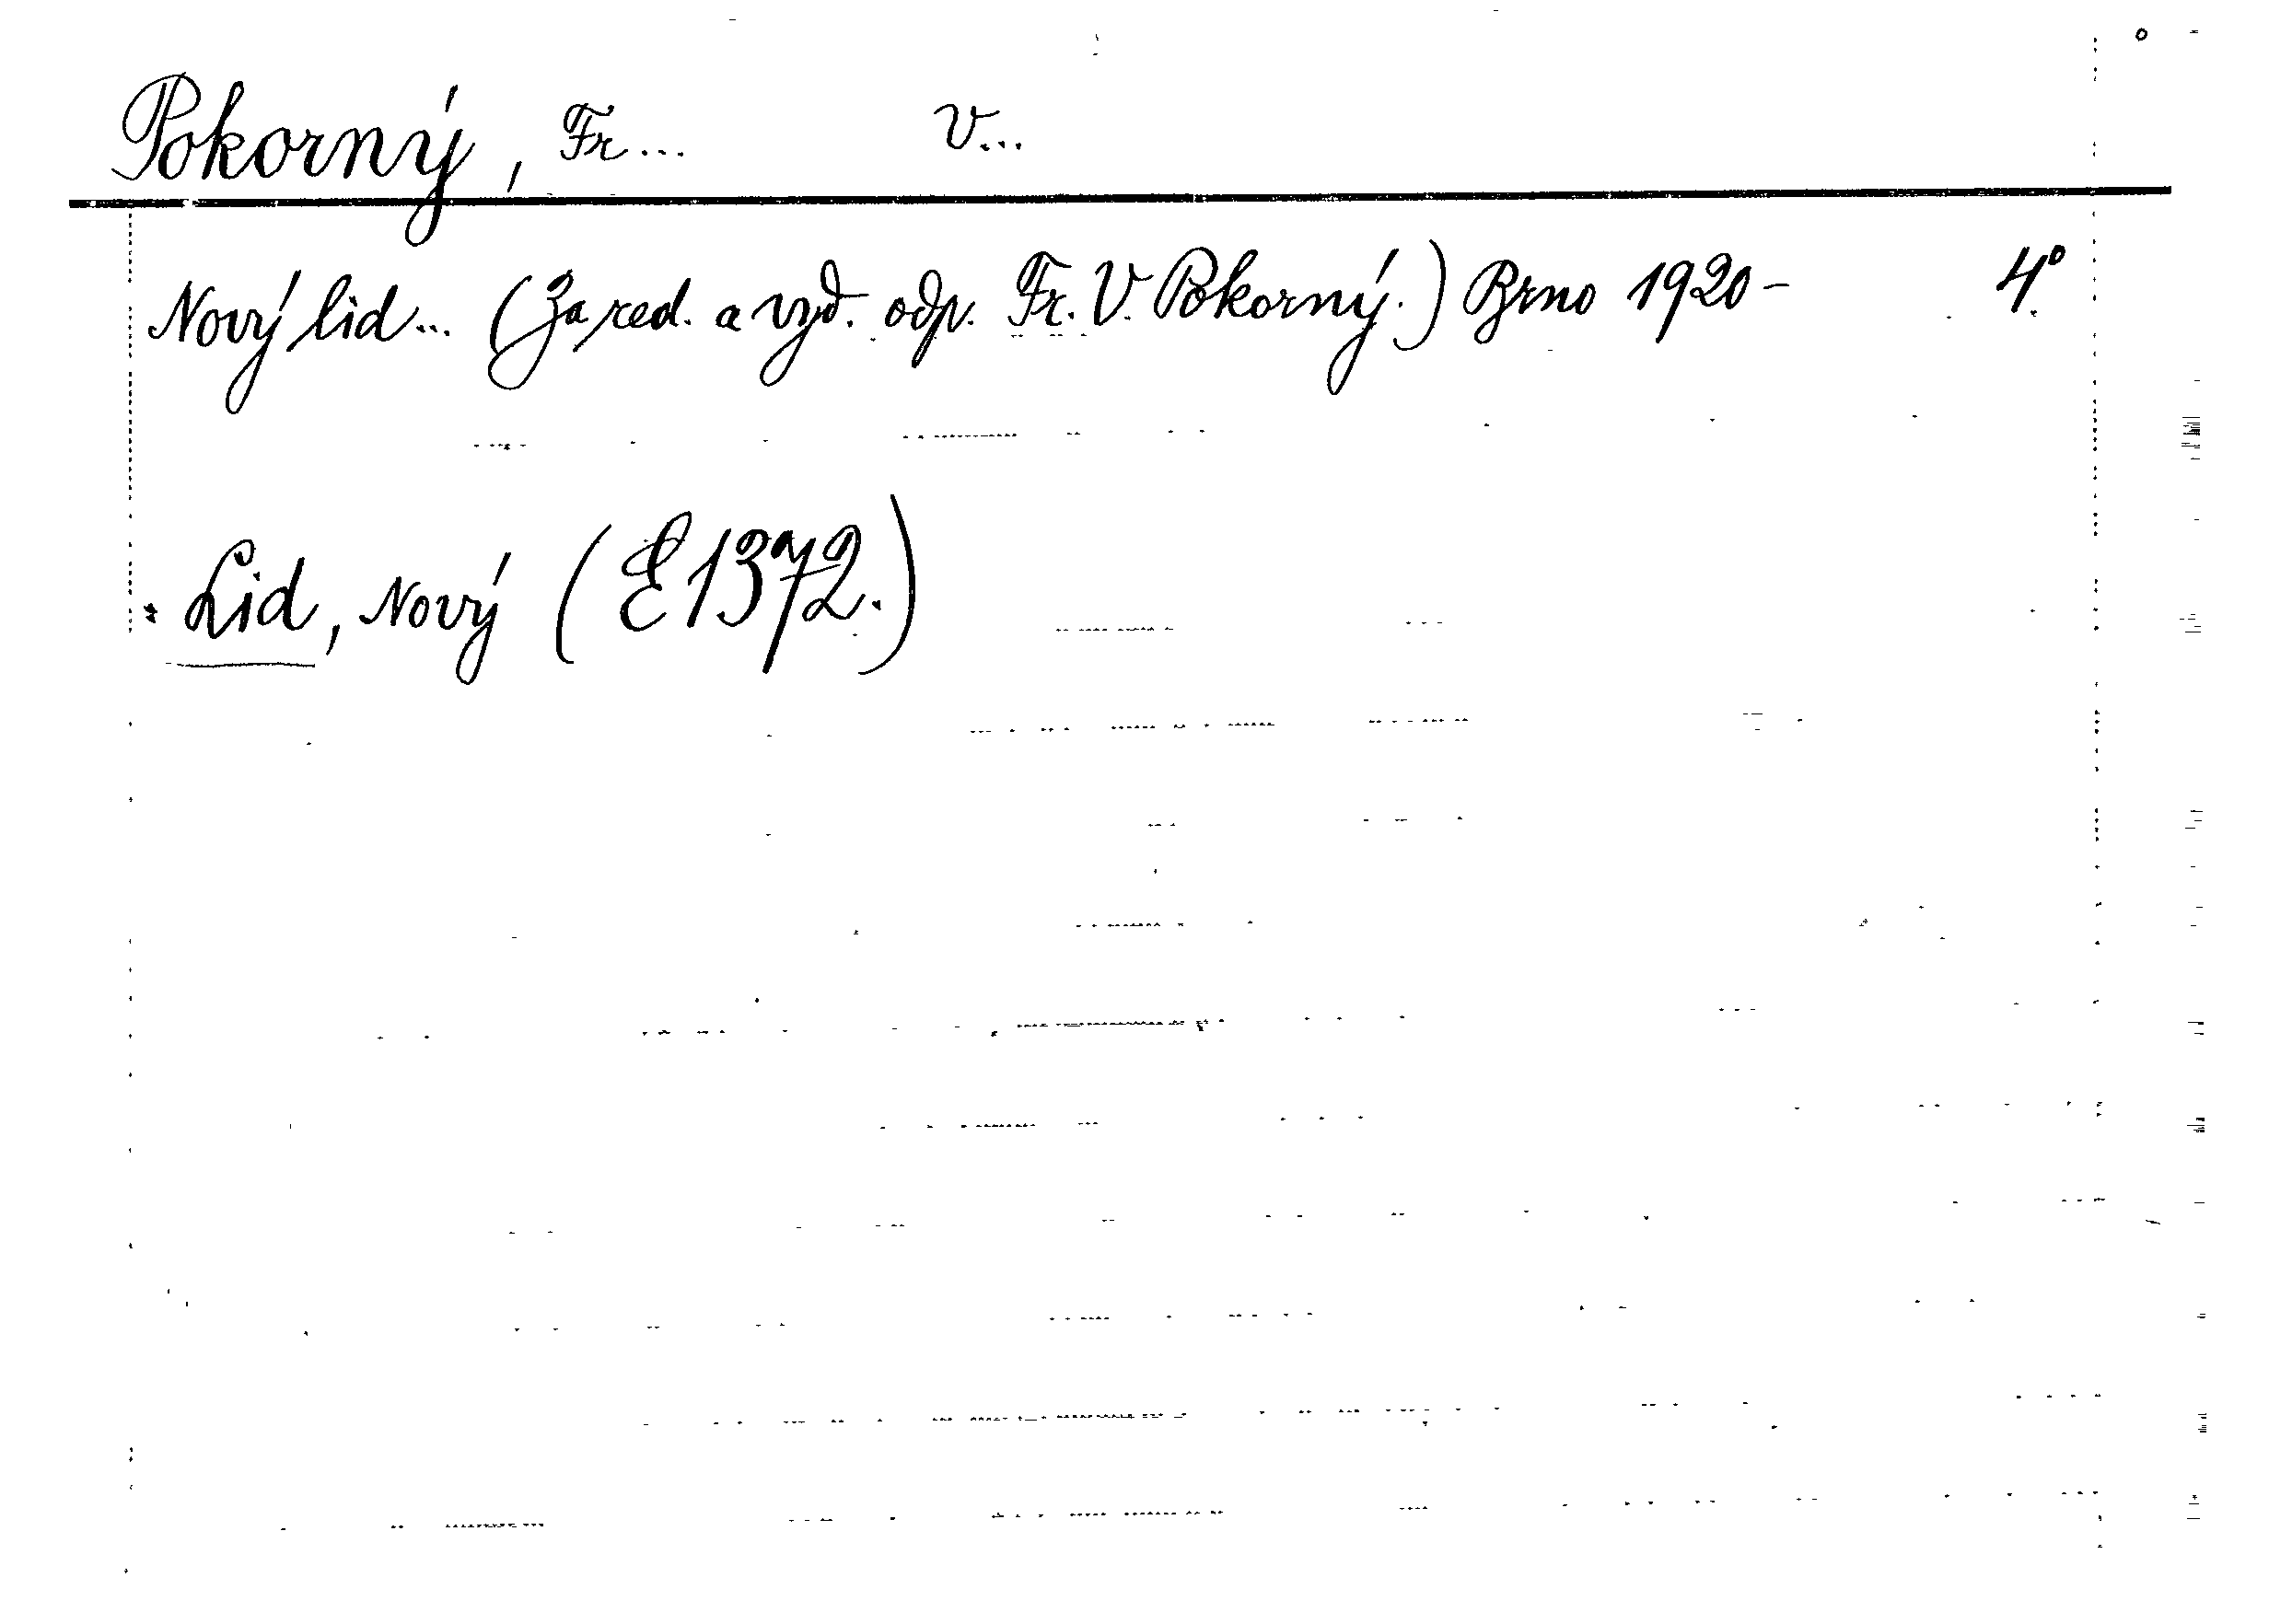 Pokorný, Fr... V...
Nový lid... (Za red. a vyd. odp. Fr. V. Pokorný.) Brno 1920- 4°.
: Lid, Nový (E 1372.)